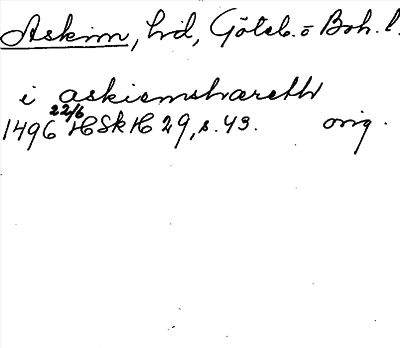 Askim, hd, Göteb. o Boh. l.
i askiemshæreth
1496 22/6 HSkH 29, s. 43. orig.